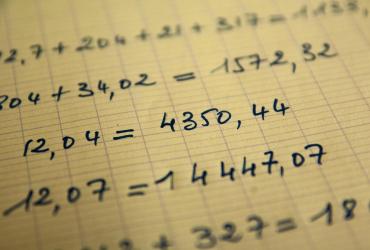 2,7 + 204 + 21 + 317 = 1138,
804 + 34,02 = 1572,32
12,04 = 4350,44
12,07 = 14447,07
+ 327 = 18